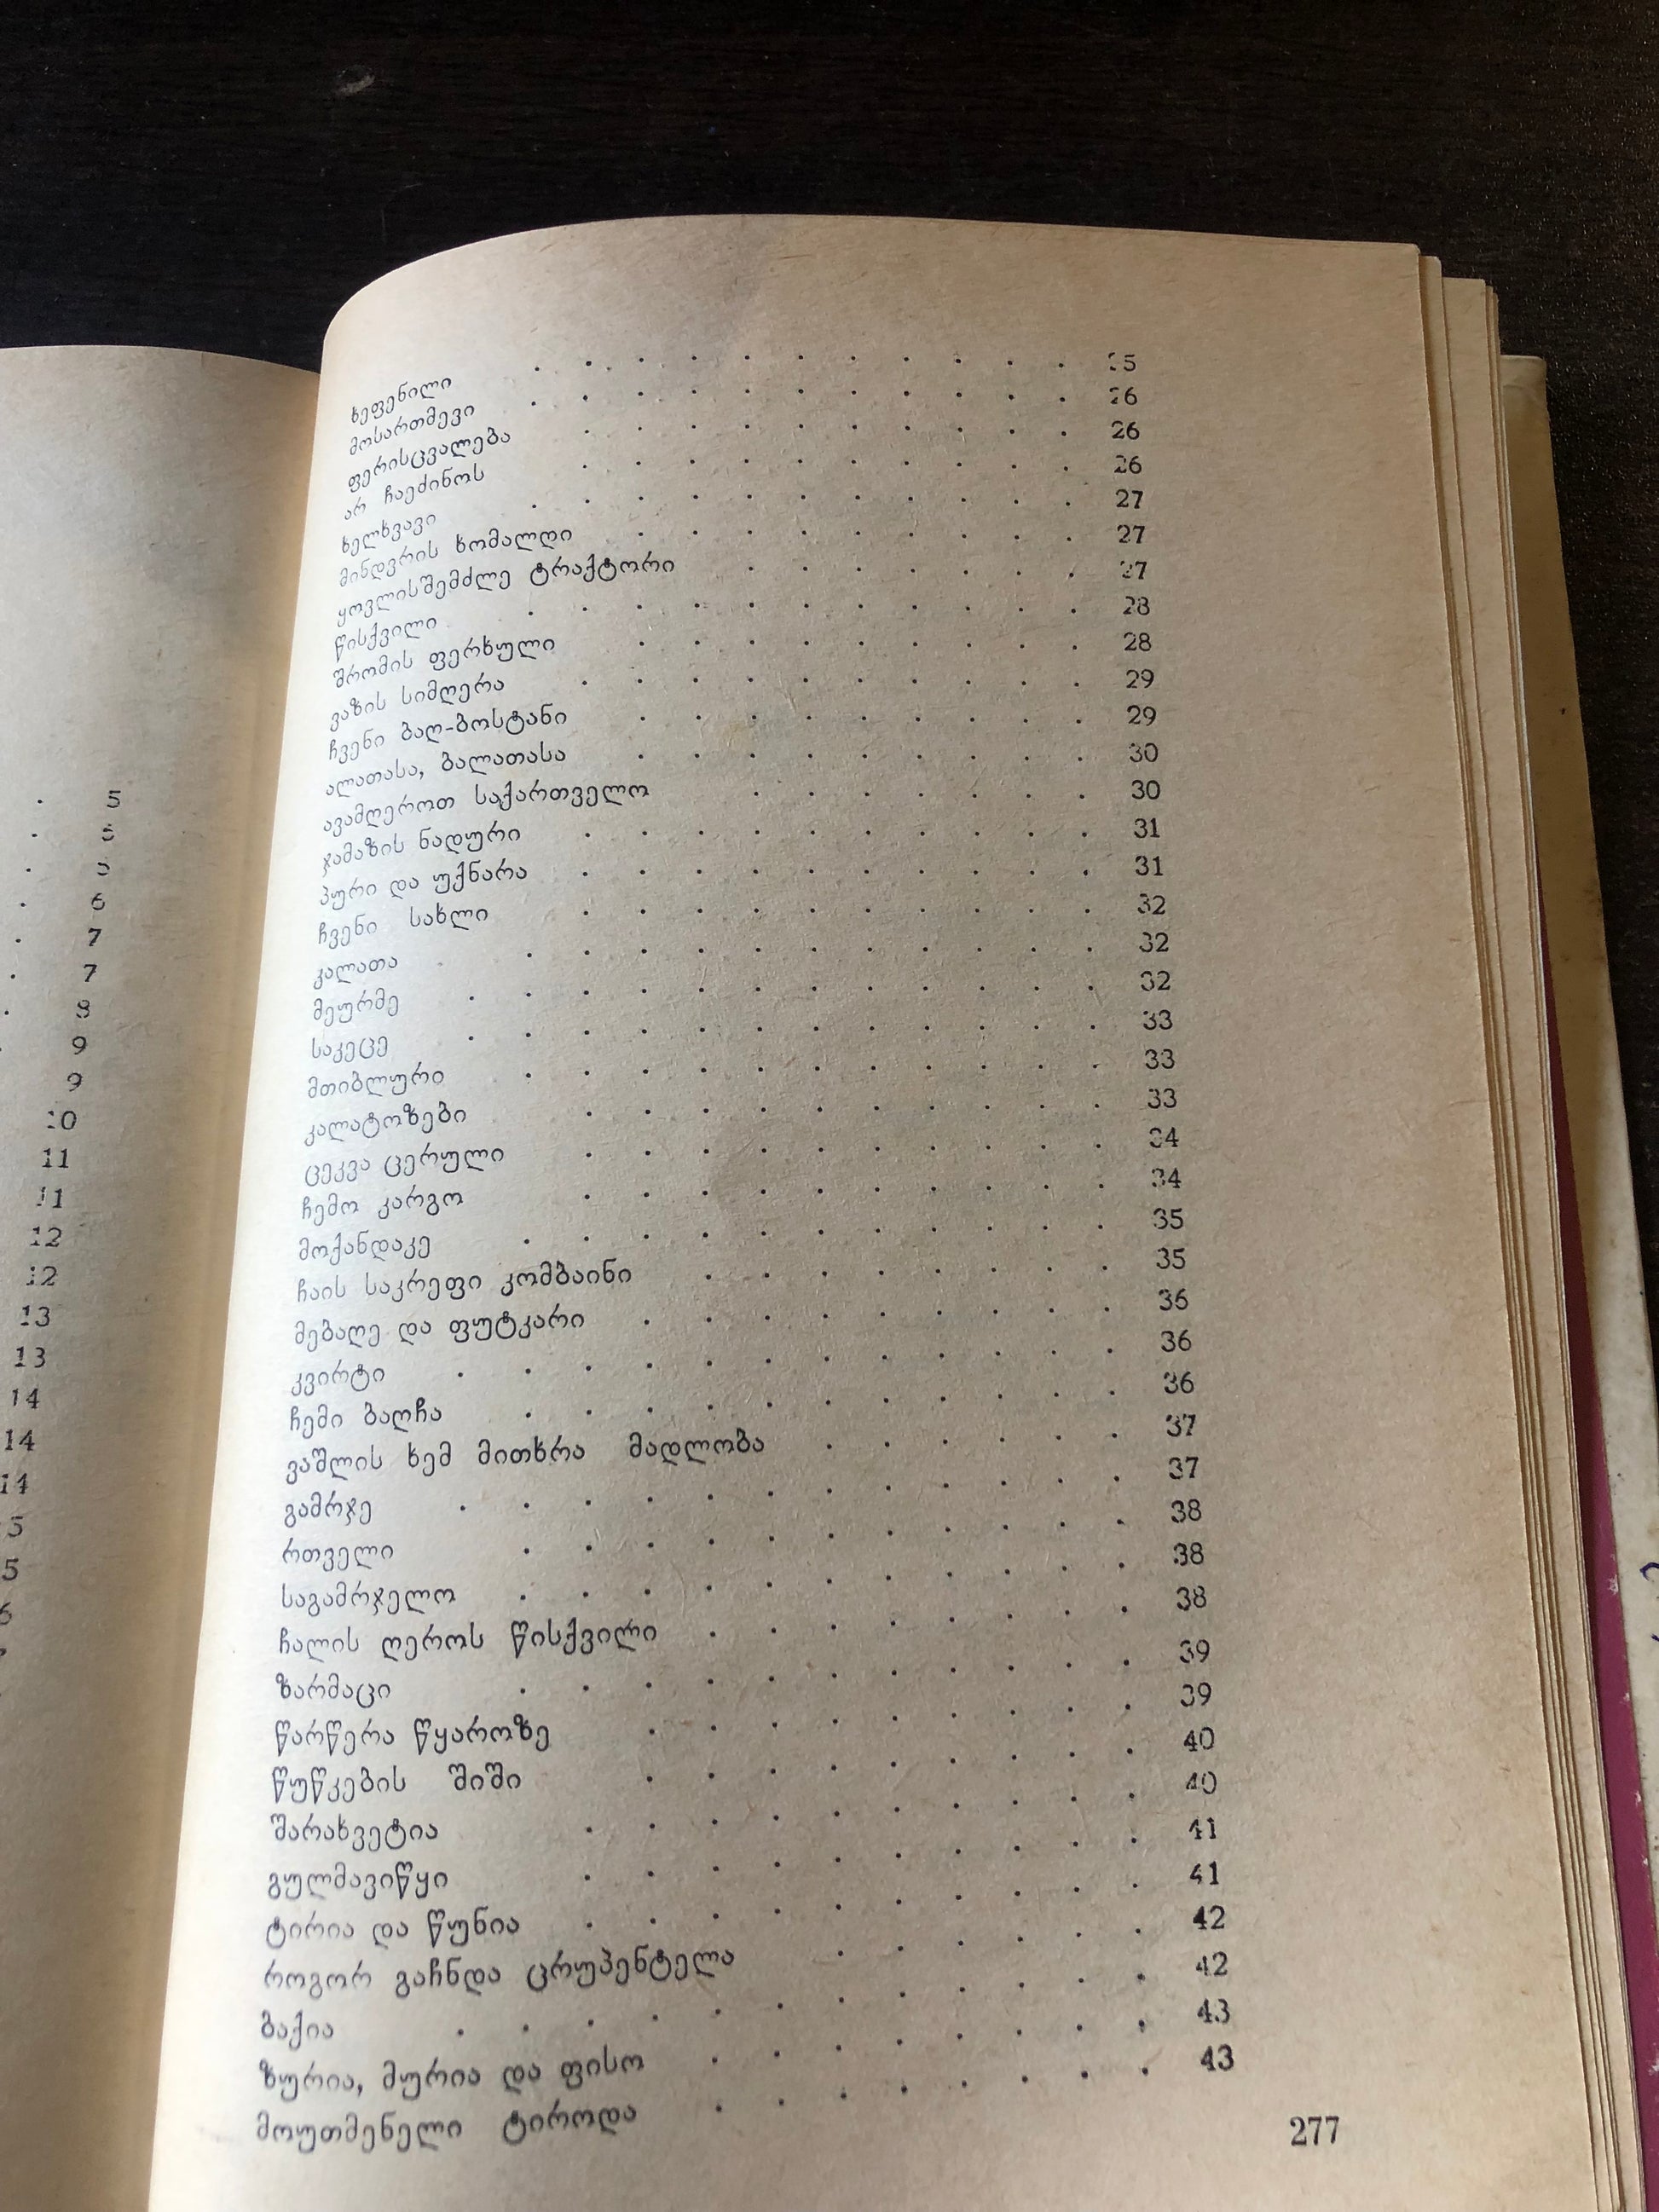 5
5
5
6
7
7
8
9
9
10
11
11
12
12
13
13
14
14
14
5
5
6
ხეფენილი . . . . . . . . . . . 25
მოსართმევი . . . . . . . . . . . 26
ფერისცვალება . . . . . . . . . . 26
არ ჩაეძინოს . . . . . . . . . . 26
ხელხვავი . . . . . . . . . . . 27
მინდვრის ხომალდი . . . . . . . . . 27
ყოვლისშემძლე ტრაქტორი . . . . . . . 27
წისქვილი . . . . . . . . . . . 28
შრომის ფერხული . . . . . . . . . 28
ვაზის სიმღერა . . . . . . . . . . 29
ჩვენი ბაღ-ბოსტანი . . . . . . . . . 29
ალათასა, ბალათასა . . . . . . . . . 30
ავამღეროთ საქართველო . . . . . . . 30
ჯამაზის ნადური . . . . . . . . . . 31
პური და უქნარა . . . . . . . . . . 31
ჩვენი სახლი . . . . . . . . . . 32
კალათა . . . . . . . . . . . 32
მეურმე . . . . . . . . . . . . 32
საკეცე . . . . . . . . . . . . 33
მთიბლური . . . . . . . . . . . 33
კალატოზები . . . . . . . . . . 33
ცეკვა ცერული . . . . . . . . . . 34
ჩემო კარგო . . . . . . . . . . 34
მოქანდაკე . . . . . . . . . . . 35
ჩაის საკრეფი კომბაინი . . . . . . . . 35
მებაღე და ფუტკარი . . . . . . . . . 36
კვირტი . . . . . . . . . . . . 36
ჩემი ბაღჩა . . . . . . . . . . . 36
ვაშლის ხემ მითხრა მადლობა . . . . . . 37
გამრჯე . . . . . . . . . . . . 37
რთველი . . . . . . . . . . . 38
საგამრჯელო . . . . . . . . . . . 38
ჩალის ღეროს წისქვილი . . . . . . . . 38
ზარმაცი . . . . . . . . . . . 39
წარწერა წყაროზე . . . . . . . . . 39
წუწკების შიში . . . . . . . . . 40
შარახვეტია . . . . . . . . . . 40
გულმავიწყი . . . . . . . . . . 41
ტირია და წუნია . . . . . . . . . . 41
როგორ გაჩნდა ცრუპენტელა . . . . . . 42
ბაქია . . . . . . . . . . . . 42
ზურია, მურია და ფისო . . . . . . . . 43
მოუთმენელი ტიროდა . . . . . . . . 43
277